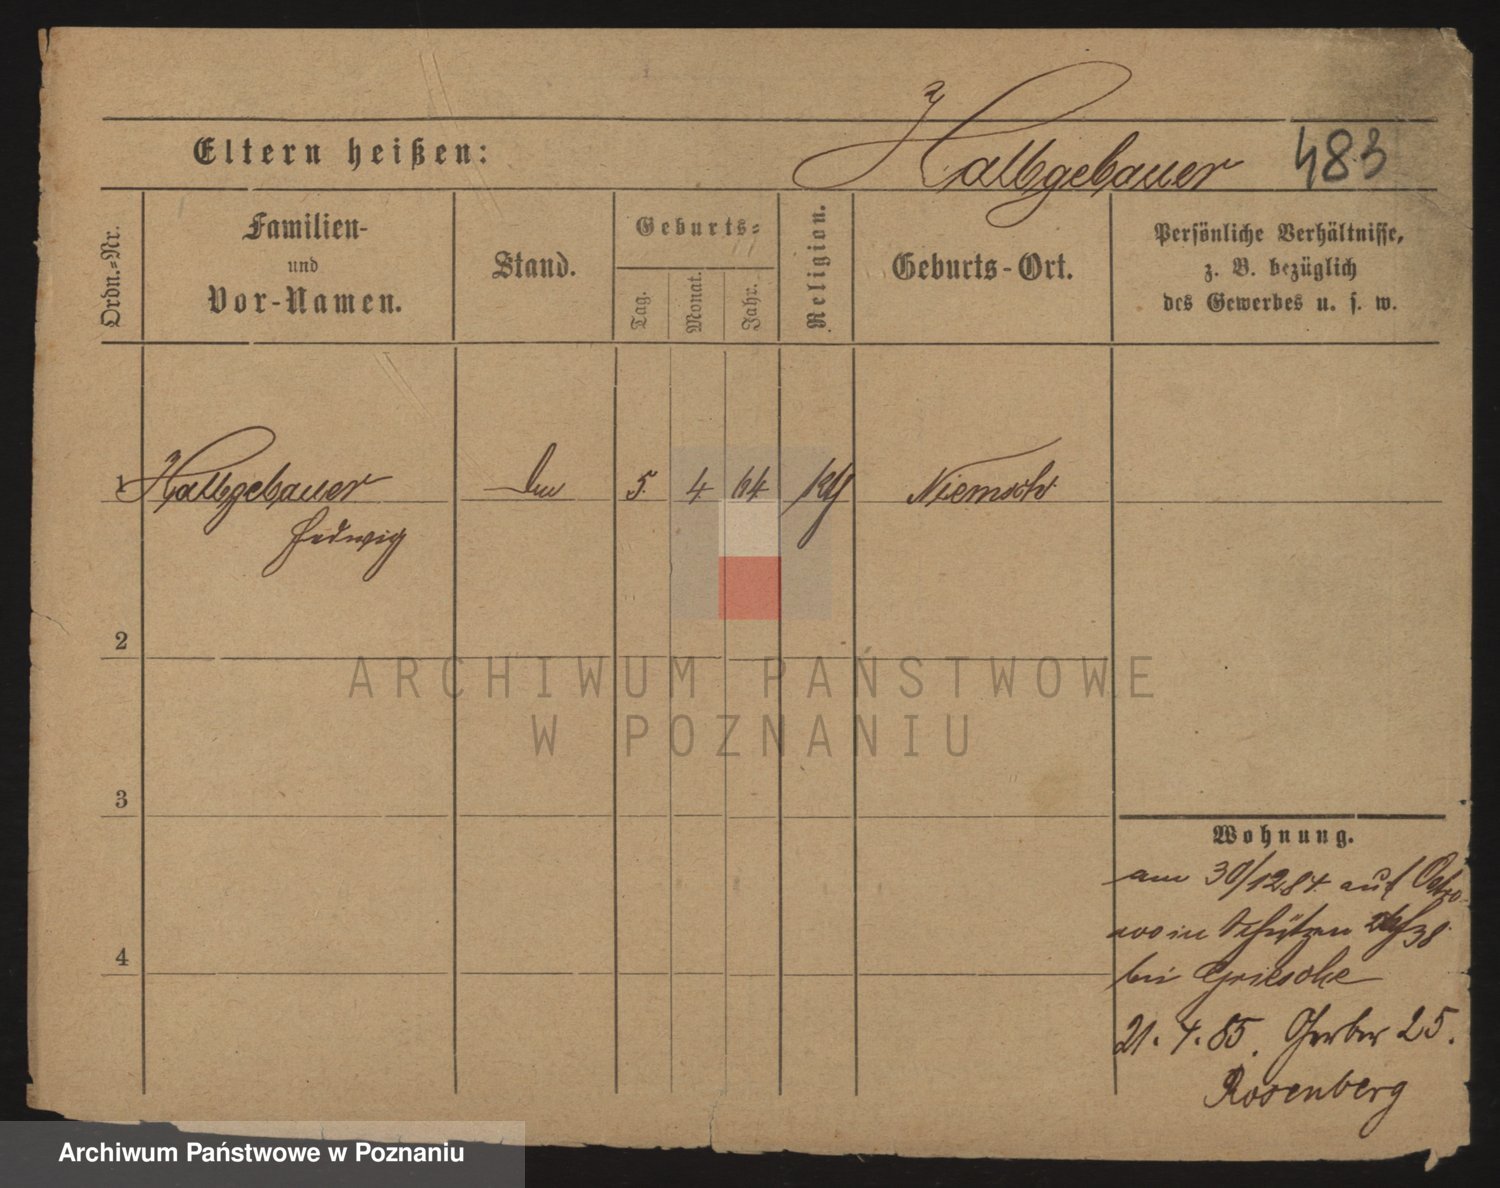 Eltern heißen:
Halbgebauer 483
Ordn.=Nr.
Familien-
und
Vor-Namen.
Stand.
Geburts=
Tag.
Monat.
Jahr.
Religion.
Geburts-Ort.
Persönliche Verhältnisse,
z. B. bezüglich
des Gewerbes u. s. w.
1 Halbgebauer 5. 4 64 Niemsch
Hedwig
2
3
4
Wohnung.
am 30/12 84 auf Ostro-
wo in Schützen 38
bei Grieschke
21. 4. 85. Gerber 25.
Rosenberg
ARCHIWUM PAŃSTWOWE
W POZNANIU
Archiwum Państwowe w Poznaniu